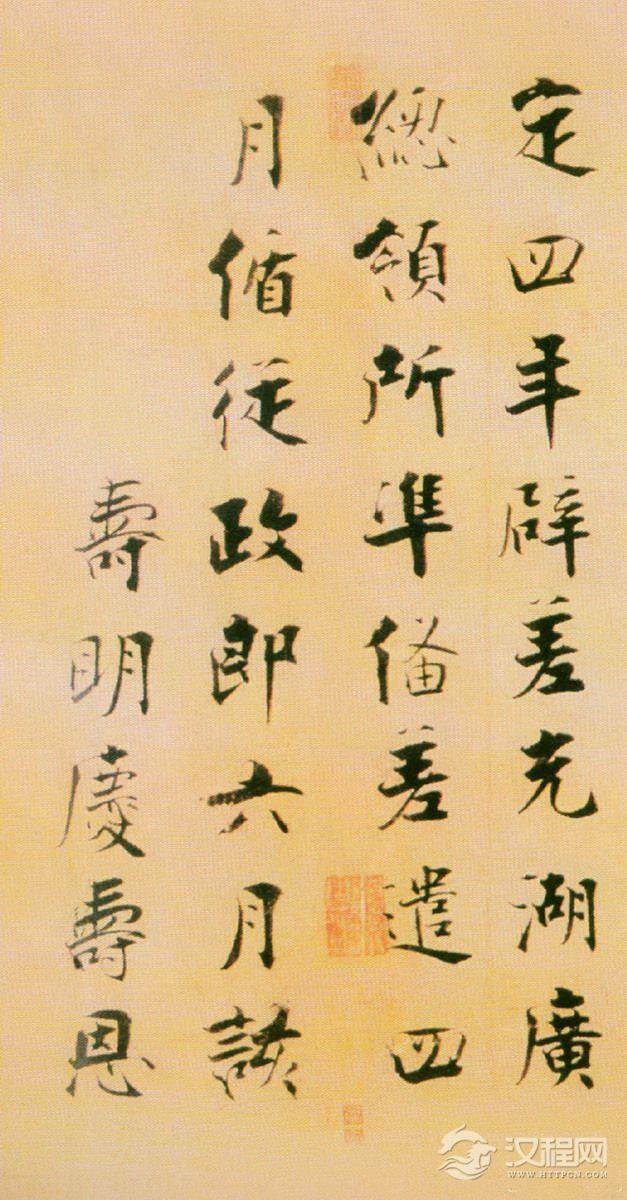 定四年辟差充湖廣
總領所準俻差遣四
月循從政郎六月該
壽明慶壽恩
汉程网
WWW.HTTPCN.COM